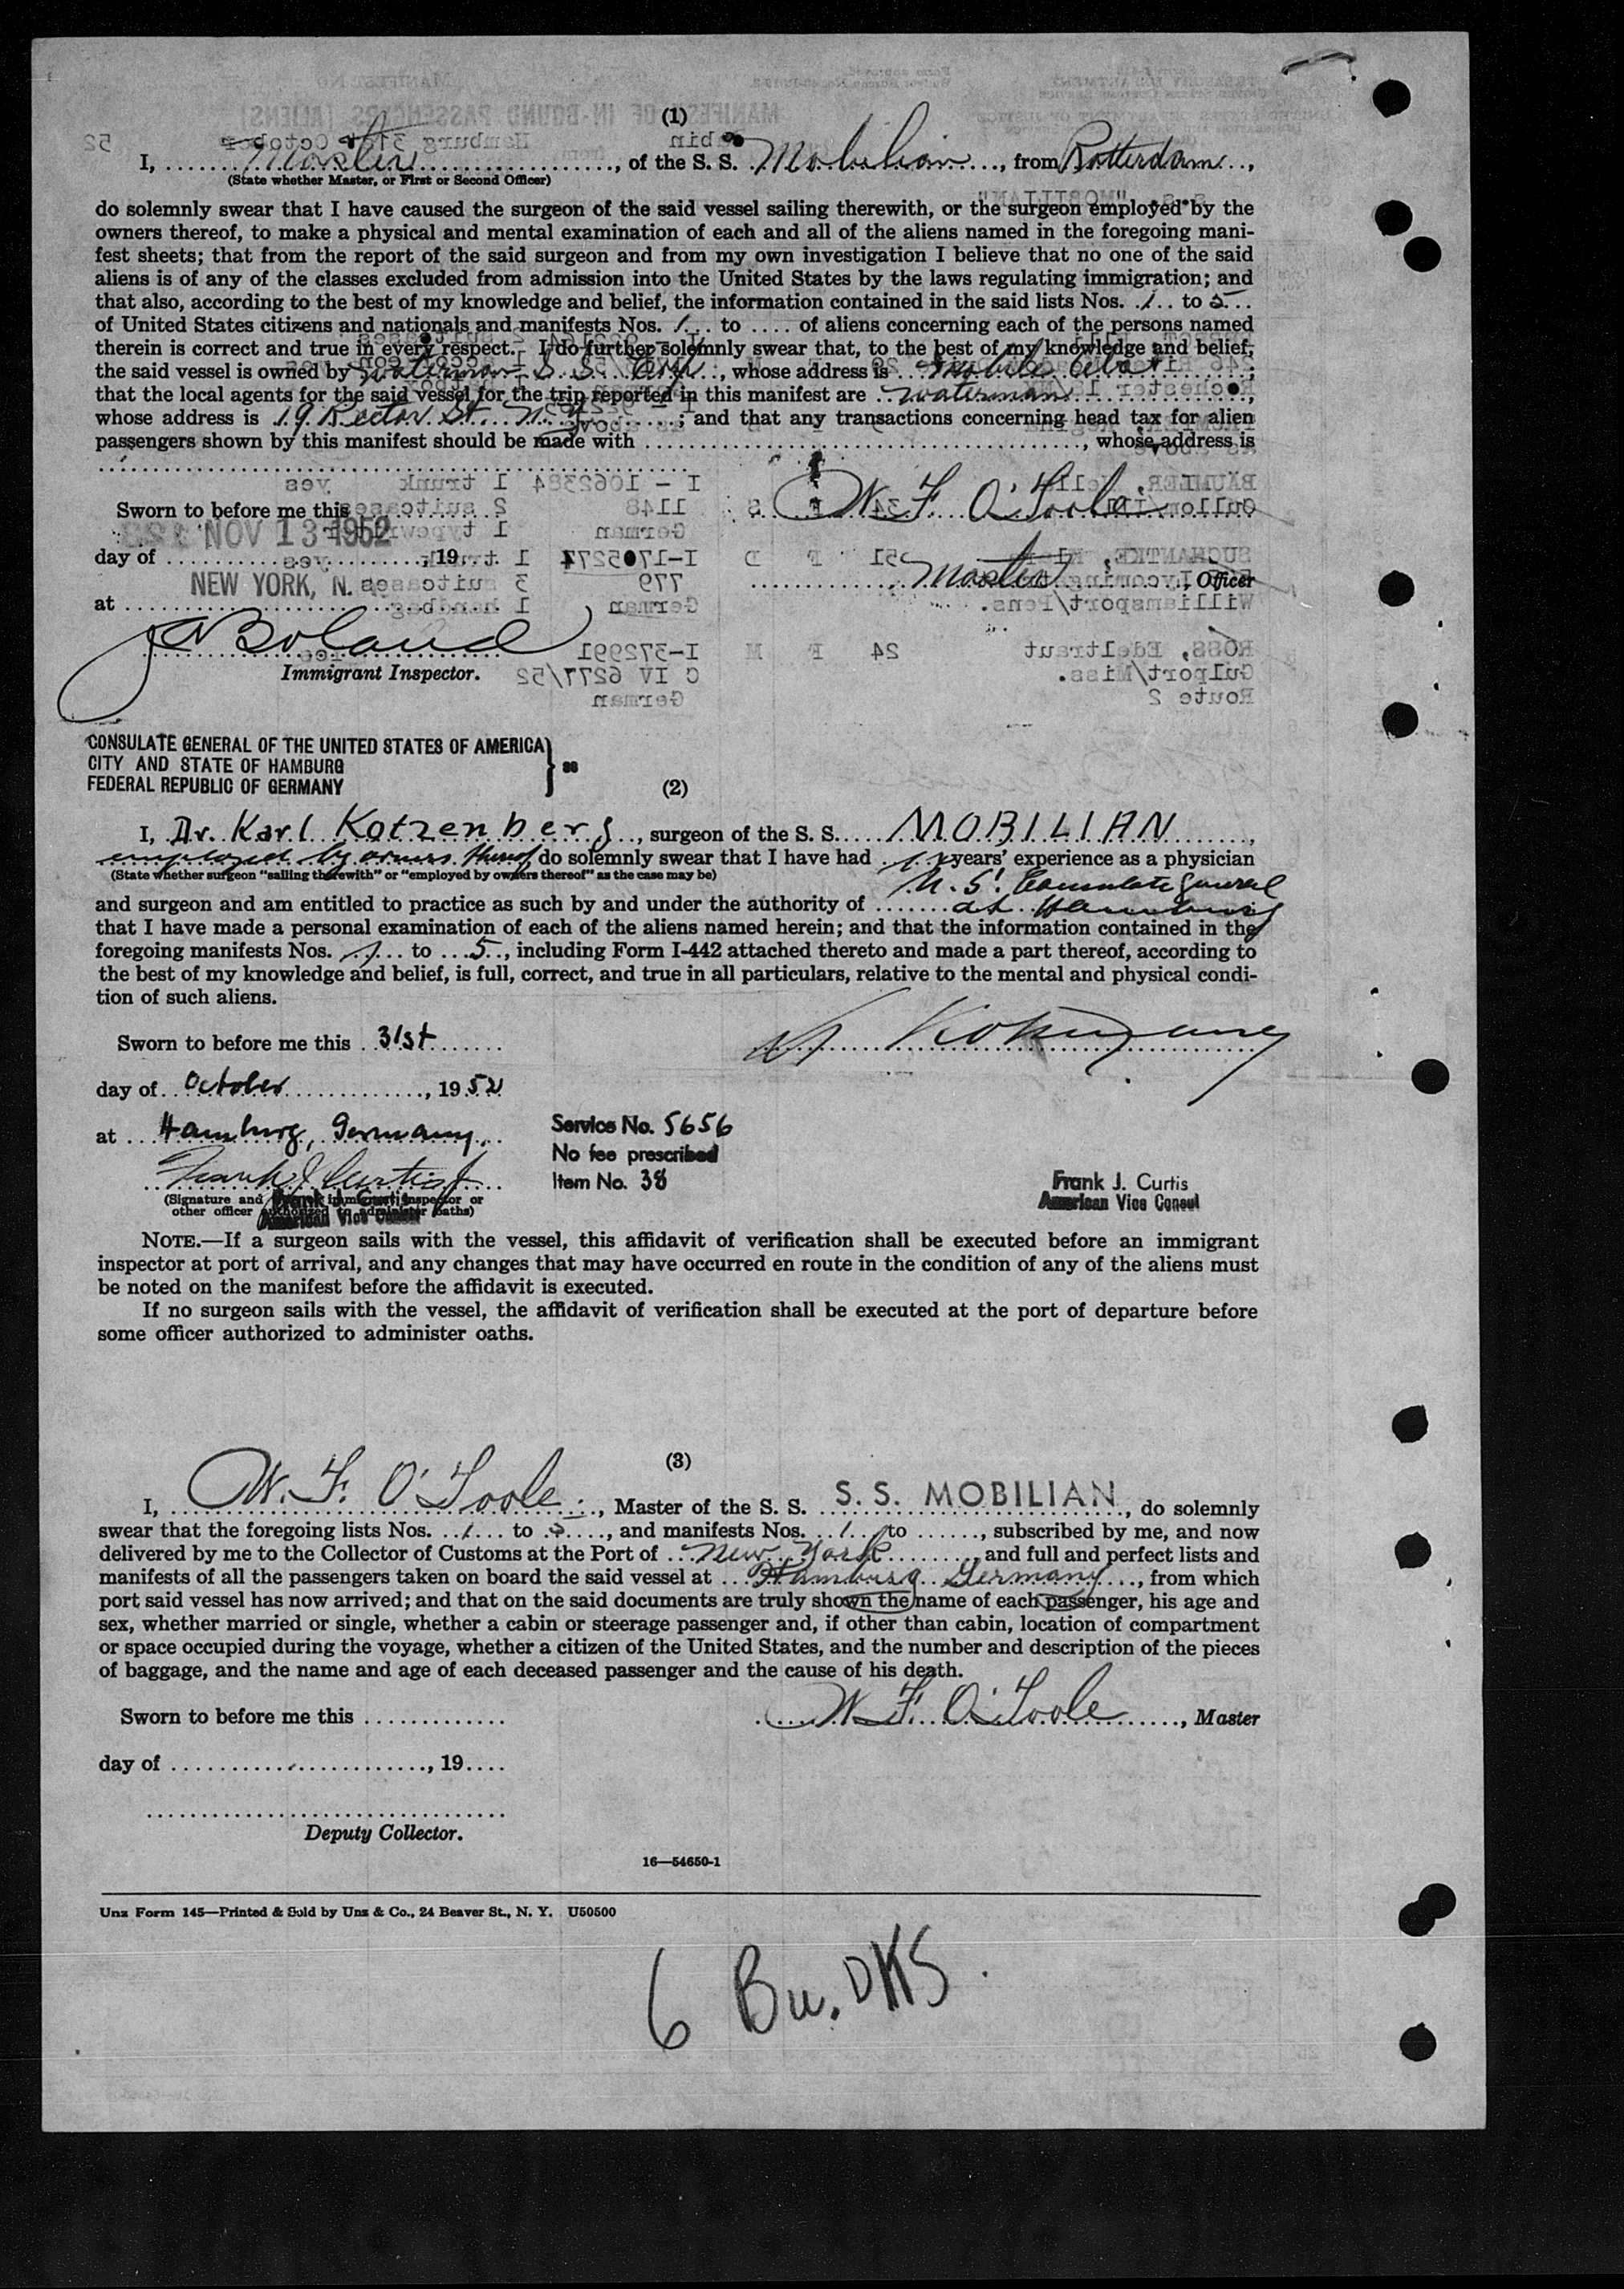 (1)
I, Master, of the S. S. Mobilian, from Rotterdam,
(State whether Master, or First or Second Officer)
do solemnly swear that I have caused the surgeon of the said vessel sailing therewith, or the surgeon employed by the
owners thereof, to make a physical and mental examination of each and all of the aliens named in the foregoing mani-
fest sheets; that from the report of the said surgeon and from my own investigation I believe that no one of the said
aliens is of any of the classes excluded from admission into the United States by the laws regulating immigration; and
that also, according to the best of my knowledge and belief, the information contained in the said lists Nos. 1 to 5
of United States citizens and nationals and manifests Nos. 1 to .... of aliens concerning each of the persons named
therein is correct and true in every respect. I do further solemnly swear that, to the best of my knowledge and belief,
the said vessel is owned by Waterman S. S. , whose address is Mobile Ala ;
that the local agents for the said vessel for the trip reported in this manifest are Waterman ,
whose address is 19 Rector St. N.Y. ; and that any transactions concerning head tax for alien
passengers shown by this manifest should be made with ...., whose address is
W F O'Toole
Sworn to before me this
NOV 13 1952
day of ...., 19
Master, Officer
NEW YORK, N.
at
J Boland
Immigrant Inspector.
CONSULATE GENERAL OF THE UNITED STATES OF AMERICA
CITY AND STATE OF HAMBURG } ss
FEDERAL REPUBLIC OF GERMANY
(2)
I, Dr. Karl Kotzenberg, surgeon of the S. S. MOBILIAN,
employed by owners thereof, do solemnly swear that I have had years' experience as a physician
(State whether surgeon "sailing therewith" or "employed by owners thereof" as the case may be)
U. S. Consulate General
and surgeon and am entitled to practice as such by and under the authority of at Hamburg
that I have made a personal examination of each of the aliens named herein; and that the information contained in the
foregoing manifests Nos. 1 to 5, including Form I-442 attached thereto and made a part thereof, according to
the best of my knowledge and belief, is full, correct, and true in all particulars, relative to the mental and physical condi-
tion of such aliens.
Sworn to before me this 31st
day of October, 1952
at Hamburg, Germany,
Service No. 5656
No fee prescribed
Item No. 38
Frank J Curtis
Frank J. Curtis
American Vice Consul
(Signature and immigrant inspector or
other officer authorized to administer oaths)
Frank J. Curtis
American Vice Consul
NOTE.—If a surgeon sails with the vessel, this affidavit of verification shall be executed before an immigrant
inspector at port of arrival, and any changes that may have occurred en route in the condition of any of the aliens must
be noted on the manifest before the affidavit is executed.
If no surgeon sails with the vessel, the affidavit of verification shall be executed at the port of departure before
some officer authorized to administer oaths.
(3)
I, W. F. O'Toole, Master of the S. S. S. S. MOBILIAN, do solemnly
swear that the foregoing lists Nos. 1 to 5, and manifests Nos. 1 to ......, subscribed by me, and now
delivered by me to the Collector of Customs at the Port of New York, and full and perfect lists and
manifests of all the passengers taken on board the said vessel at Hamburg Germany, from which
port said vessel has now arrived; and that on the said documents are truly shown the name of each passenger, his age and
sex, whether married or single, whether a cabin or steerage passenger and, if other than cabin, location of compartment
or space occupied during the voyage, whether a citizen of the United States, and the number and description of the pieces
of baggage, and the name and age of each deceased passenger and the cause of his death.
Sworn to before me this ............
W F. O'Toole, Master
day of ...., 19....
Deputy Collector.
16—54650-1
Unz Form 145—Printed & Sold by Unz & Co., 24 Beaver St., N. Y. U50500
6 Bu. DKS.